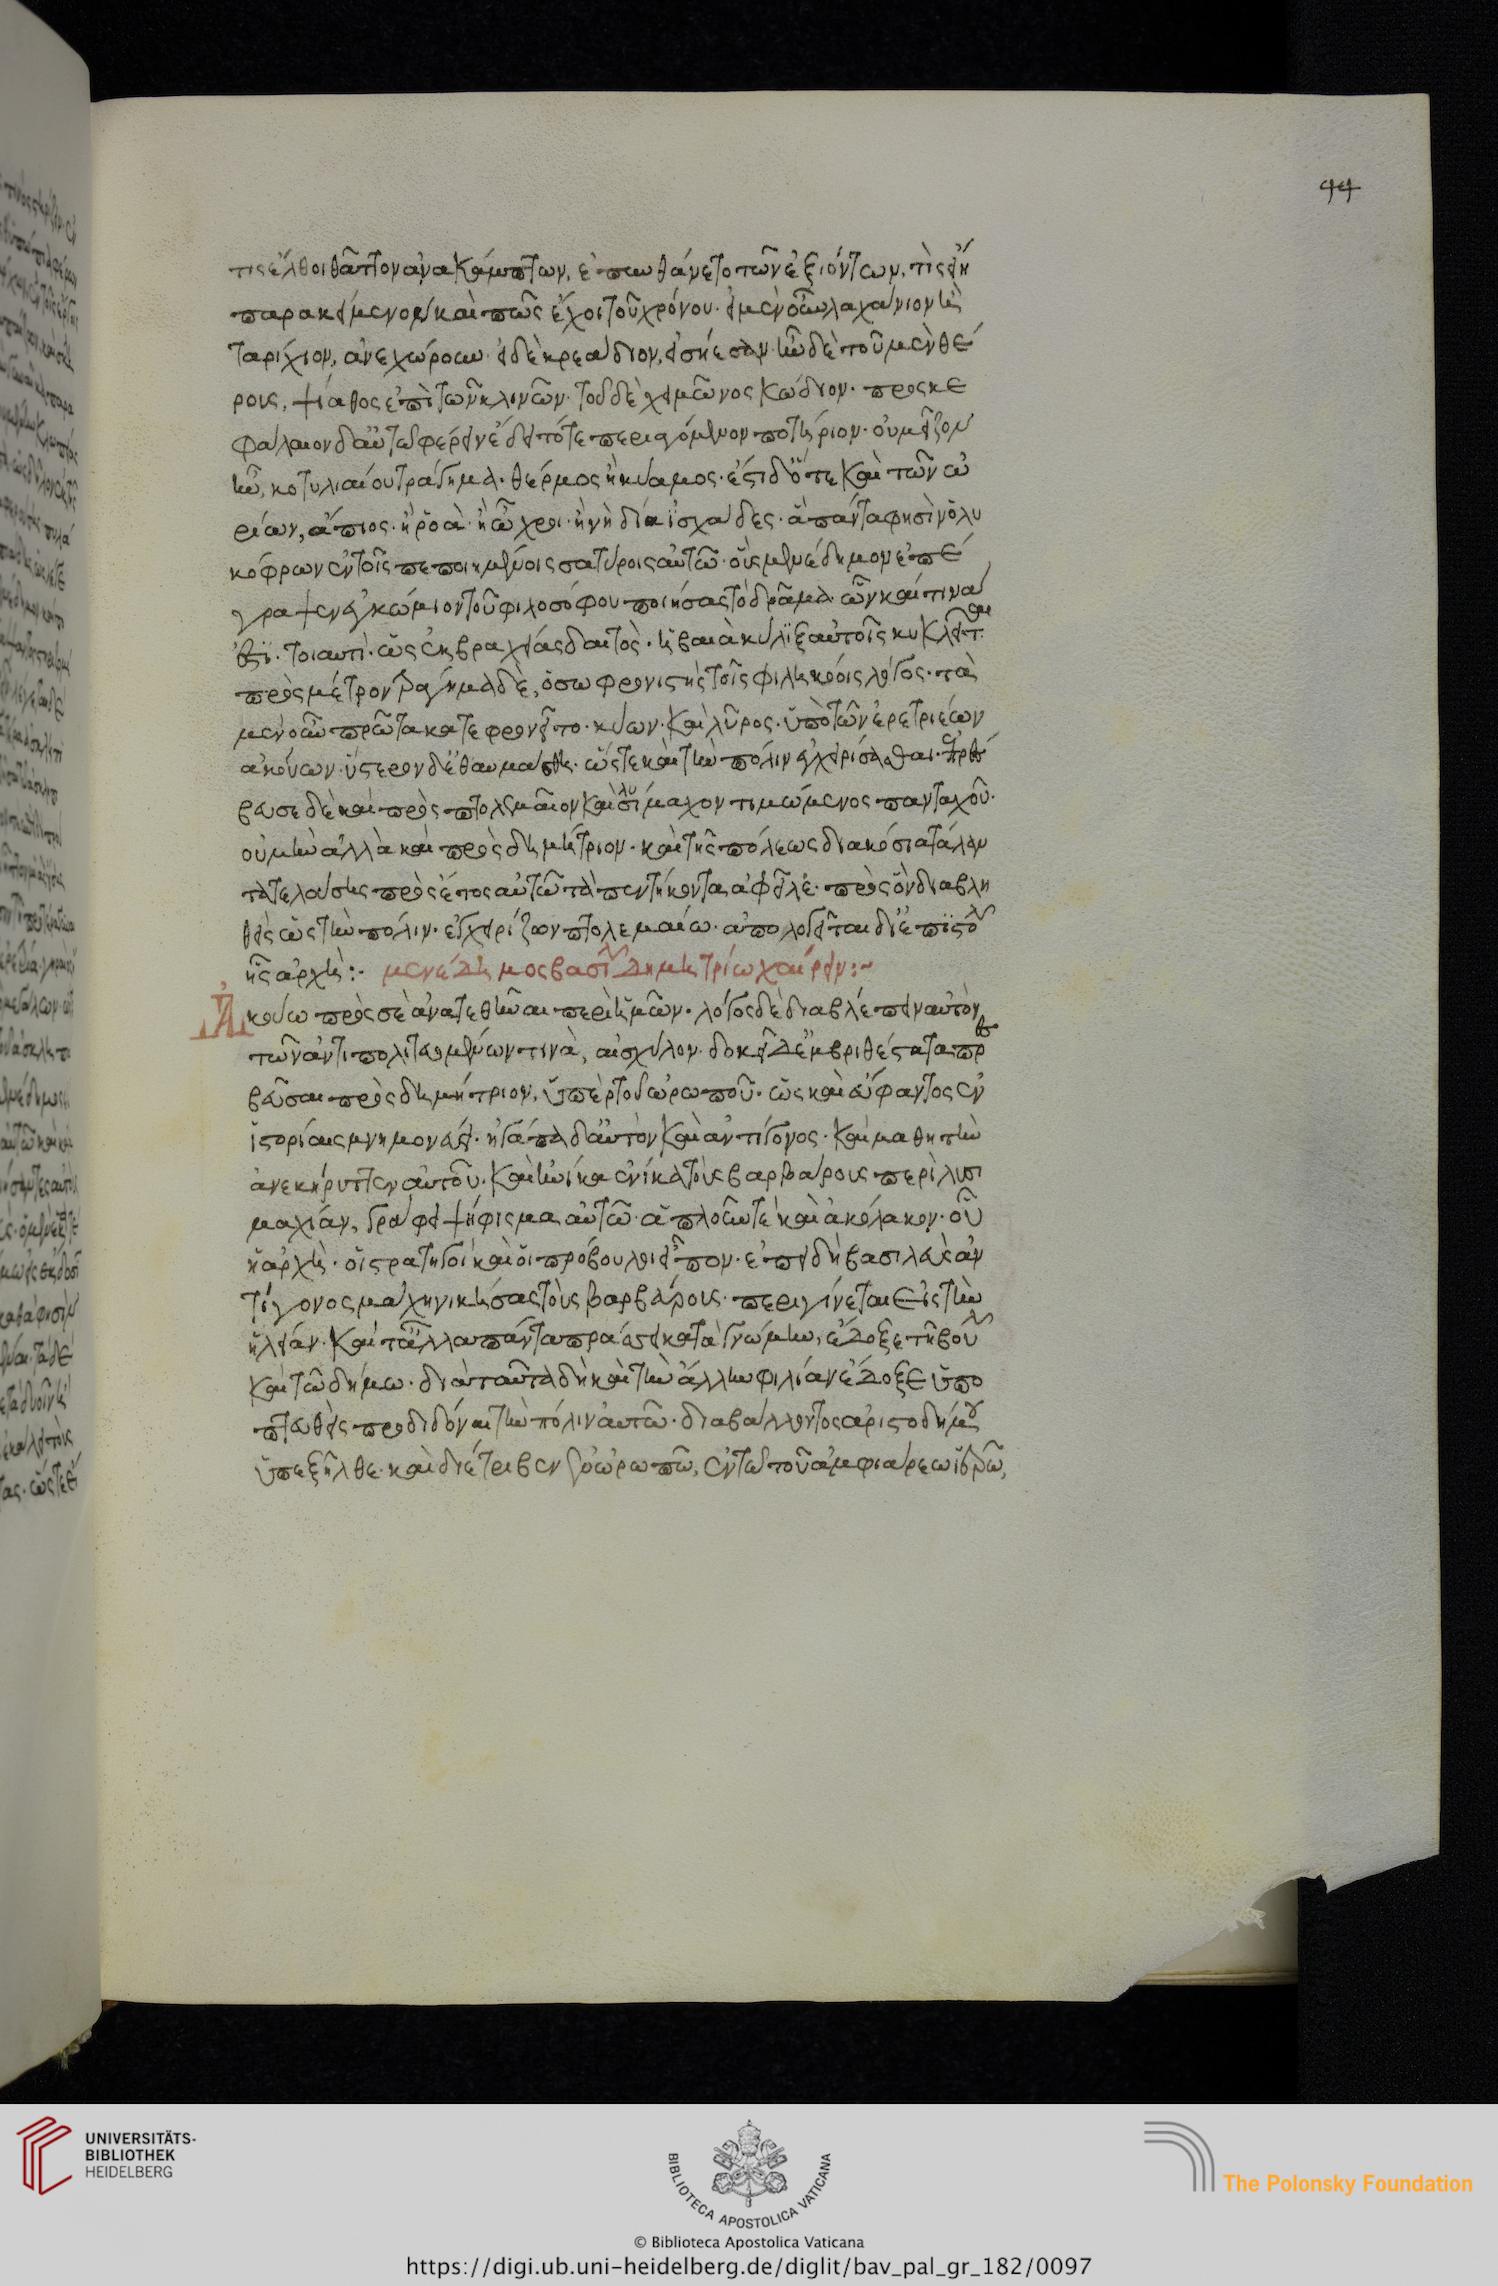 44
τις ἔλθοι θᾶττον ἀνακάμπτων, ἐπυνθάνετο τῶν ἐξιόντων, τίς εἴη
παρακείμενον καὶ πῶς ἔχοι τοῦ χρόνου· εἰ μὲν οὖν λαχάνιον ἢ
ταρίχιον, ἀνεχώρουν· εἰ δὲ κρεάδιον, εἰσήεσαν· ἦν δὲ τοῦ μὲν θέ
ρους, ψίαθος ἐπὶ τῶν κλινῶν· τοῦ δὲ χειμῶνος κώδιον· προσκε
φάλαιον δ' αὑτῶ φέρειν ἔδει τό τε περιαγόμενον ποτήριον· οὐ μεῖζον
ἦν, κοτυλιαίου τράγημα· θέρμος ἢ κύαμος· ἔστι δ' ὅτε καὶ τῶν ὡ
ρίων, ἄπιος· ἢ ῥοὰ· ἢ ὦχροι· ἢ νὴ δία ἰσχάδες· ἅπαντά φησὶν ὁ λυ
κόφρων ἐν τοῖς πεποιημένοις σατύροις αὐτῶ· οὓς μενέδημον ἐπέ
γραψεν ἐγκώμιον τοῦ φιλοσόφου ποιήσας τὸ δρᾶμα· ὧν καί τινά
ἐστι· τοιαυτὶ· ὡς ἐκ βραχείας δαιτὸς· ἡ βαιὰ κύλιξ αὐτοῖς κυκλεῖται
πρὸς μέτρον τράγημα δὲ, ὁ σωφρονιστὴς τοῖς φιληκόοις λόγος· τὰ
μὲν οὖν πρῶτα κατεφρονεῖτο· κύων· καὶ λῆρος· ὑπὸ τῶν ἐρετριέων
ἀκούων· ὕστερον δ' ἐθαυμάσθη· ὥστε καὶ τὴν πόλιν ἐγχειρίσασθαι· ἐπρέσ
βευσε δὲ καὶ πρὸς πτολεμαῖον καὶ λυσίμαχον τιμώμενος πανταχοῦ·
οὐ μὴν ἀλλὰ καὶ πρὸς δημήτριον· καὶ τῆς πόλεως διακόσια τάλαν
τα τελούσης πρὸς ἔτος αὐτῶ τὰ πεντήκοντα ἀφεῖλε· πρὸς ὃν διαβλη
θεὶς ὡς τὴν πόλιν· ἐγχειρίζων πτολεμαίω· ἀπολογεῖται δι' ἐπιστολ
ῆς ἀρχὴ:· μενέδημος βασιλ δημητρίω χαίρειν:~
Ἀκούω πρὸς σὲ ἀνατεθῆναι περὶ ἡμῶν· λόγος δὲ διαβλέπειν αὐτὸν
τῶν ἀντιπολιτευομένων τινὰ, αἰσχύλον· δοκεῖ δ' ἐμβριθέστατα πρεσ
βεῦσαι πρὸς δημήτριον, ὑπὲρ τοῦ ὠρωποῦ· ὡς καὶ εὔφαντος ἐν
ἱστορίαις μνημονεύει· ἠγάπα δ' αὐτὸν καὶ ἀντίγονος· καὶ μαθητὴν
ἀνεκήρυττεν αὑτοῦ· καὶ ἡνίκα ἐνίκα τοὺς βαρβάρους περὶ λυσι
μαχίαν, γράφει ψήφισμα αὐτῶ· ἁπλοῦν τε καὶ ἀκόλακον· οὗ
ἡ ἀρχὴ· οἱ στρατηγοὶ καὶ οἱ πρόβουλοι εἶπον· ἐπειδὴ βασιλεὺς ἀν
τίγονος μάχη νικήσας τοὺς βαρβάρους· περιγίνεται εἰς τὴν
ἠλείαν· καὶ τἄλλα πάντα πράσσει κατὰ γνώμην, ἔδοξε τῆ βουλ
καὶ τῶ δήμω· διὰ ταῦτα δὴ καὶ τὴν ἄλλην φιλίαν ἔδοξε ὑπο
πτευθεὶς προδιδόναι τὴν πόλιν αὐτῶ· διαβάλλοντος ἀριστοδήμου
ὑπεξῆλθε· καὶ διέτριβεν ἐν ὠρωπῶ, ἐν τῶ τοῦ ἀμφιαρέω ἱερῶ,
UNIVERSITÄTS-
BIBLIOTHEK
HEIDELBERG
BIBLIOTECA APOSTOLICA VATICANA
The Polonsky Foundation
© Biblioteca Apostolica Vaticana
https://digi.ub.uni-heidelberg.de/diglit/bav_pal_gr_182/0097